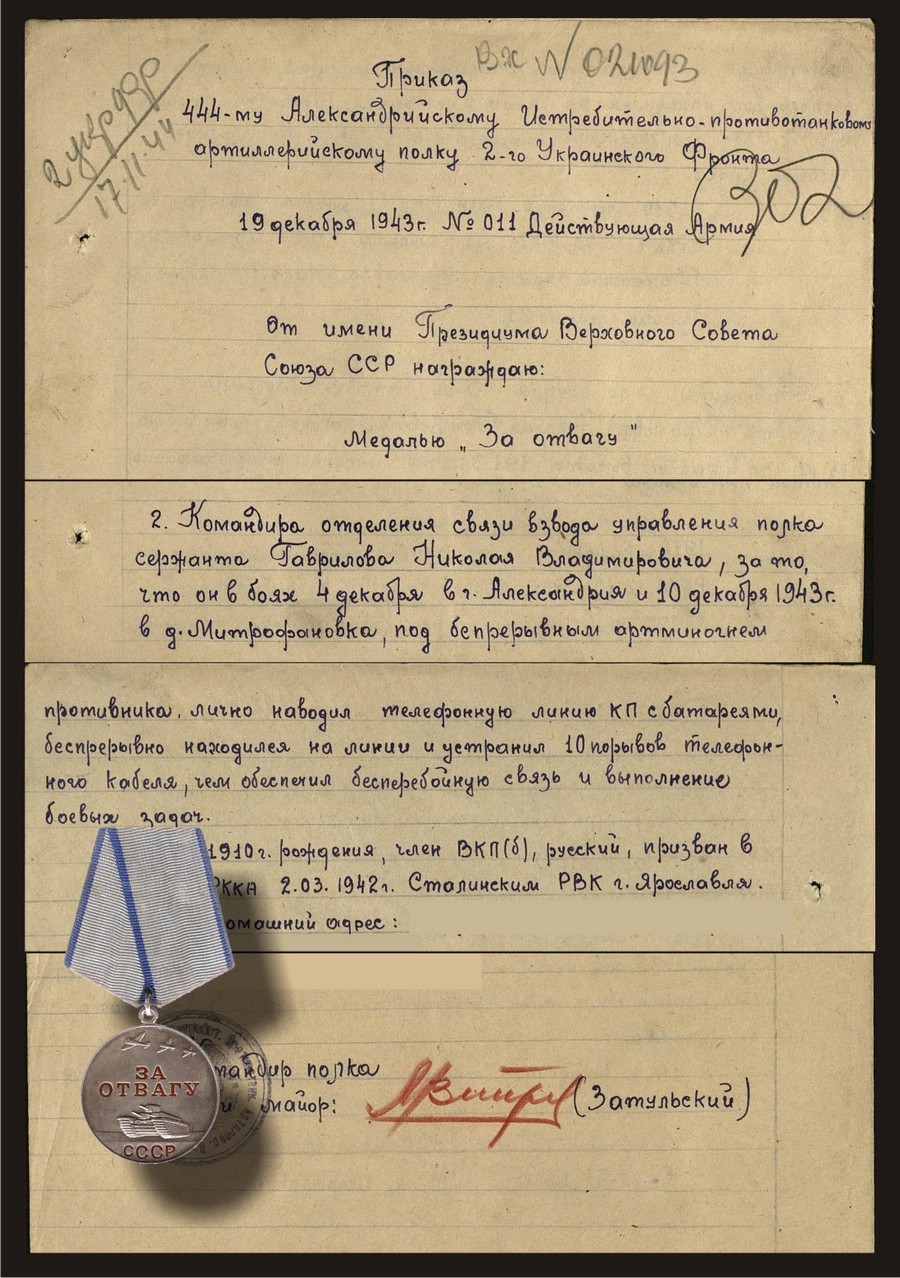 Вх № 021093
Приказ
444-му Александрийскому Истребительно-противотанковому
артиллерийскому полку 2-го Украинского Фронта
17.11.44
302
19 декабря 1943г. № 011 Действующая Армия
От имени Президиума Верховного Совета
Союза ССР награждаю:
Медалью „За отвагу"
2. Командира отделения связи взвода управления полка
сержанта Гаврилова Николая Владимировича, за то,
что он в боях 4 декабря в г. Александрия и 10 декабря 1943г.
в д. Митрофановка, под беспрерывным артминогнем
противника, лично наводил телефонную линию КП с батареями,
беспрерывно находился на линии и устранил 10 порывов телефон-
ного кабеля, чем обеспечил бесперебойную связь и выполнение
боевых задач.
1910г. рождения, член ВКП(б), русский, призван в
РККА 2.03.1942г. Сталинским РВК г. Ярославля.
омашний адрес:
мандир полка
майор: (Затульский)
ЗА
ОТВАГУ
СССР